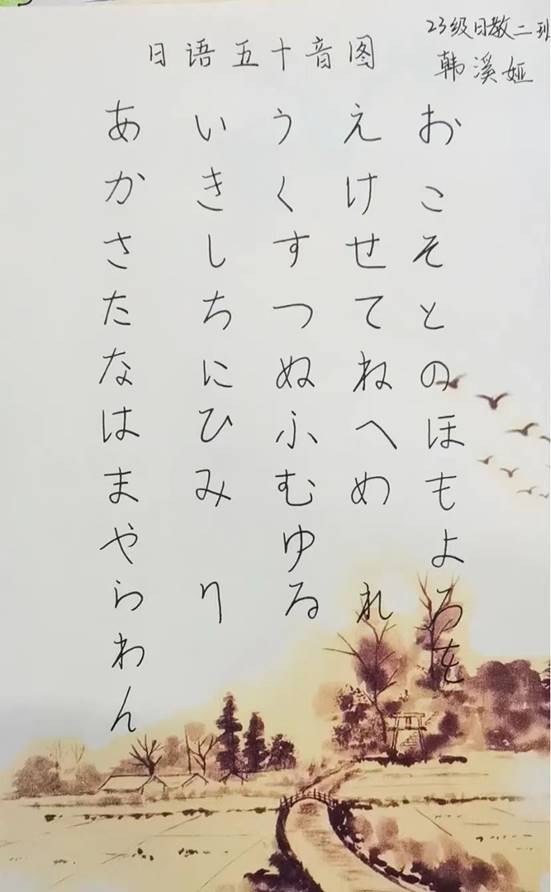 23级日教二班
韩溪娅
日语五十音图
あ い う え お
か き く け こ
さ し す せ そ
た ち つ て と
な に ぬ ね の
は ひ ふ へ ほ
ま み む め も
や ゆ よ
ら り る れ ろ
わ を
ん